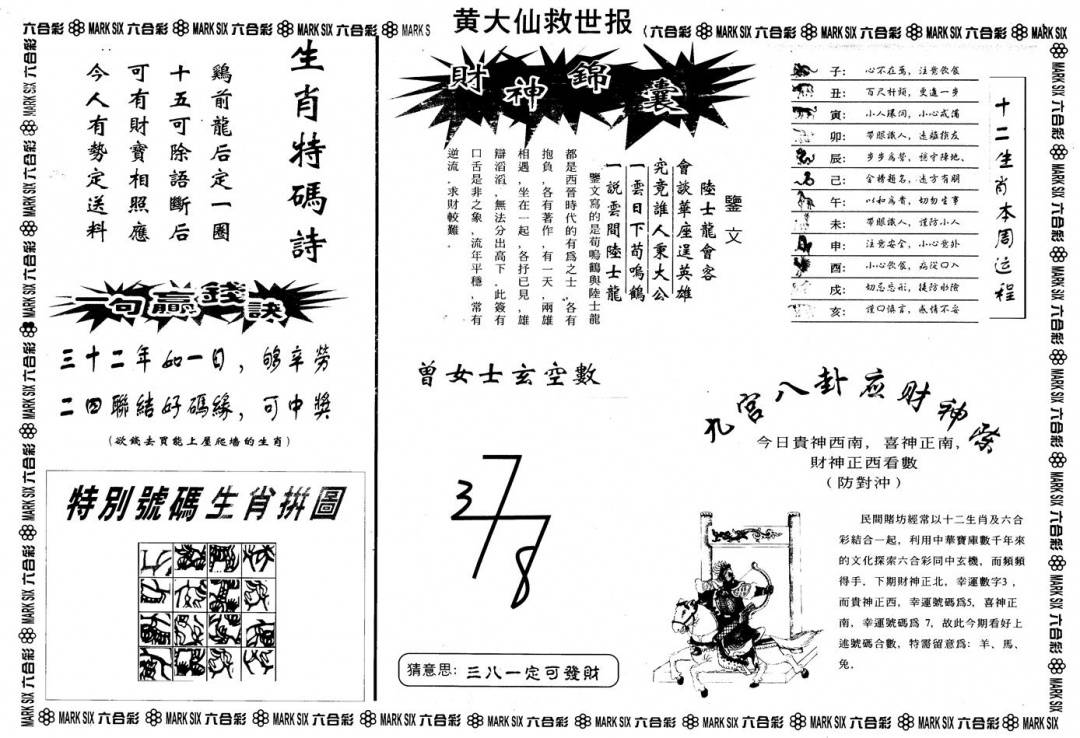 黄大仙救世报
六合彩 MARK SIX 六合彩 MARK SIX 六合彩 MARK SIX 六合彩 MARK S
六合彩 MARK SIX 六合彩 MARK SIX 六合彩 MARK SIX 六合彩 MARK SIX
生肖特碼詩
鷄前龍后定一圈
十五可除語斷后
可有財寶相照應
今人有勢定送料
一句贏錢訣
三十二年如一日，够辛勞
二四聯結好碼緣，可中獎
（欲錢去買能上屋爬墙的生肖）
特別號碼生肖拼圖
財神錦囊
鑒文
陸士龍會客
會談華座逞英雄
究竟誰人秉大公
一雲日下荀鳴鶴
一説雲間陸士龍
鑒文寫的是荀鳴鶴與陸士龍
都是西晉時代的有爲之士,各有
抱負,各有著作,有一天,兩雄
相遇,坐在一起,各抒已見,雄
辯滔滔,無法分出高下.此簽有
口舌是非之象,流年平穩,常有
逆流,求財較難.
曾女士玄空數
3
7
7
8
猜意思：三八一定可發財
十二生肖本周运程
子：心不在焉，注意飲食
丑：百尺杆頭，更進一步
寅：小人環伺，小心戒備
卯：帶眼識人，遠離損友
辰：步步爲營，穩守陣地、
巳：金榜題名，遠方有朋
午：以和爲貴，切勿生事
未：帶眼識人，謹防小人
申：注意安全，小心意外
酉：小心飲食，病從口入
戌：切忌忘形，提防水險
亥：謹口慎言，感情不妥
九宮八卦应财神祭
今日貴神西南，喜神正南，
財神正西看數
（防對沖）
民間賭坊經常以十二生肖及六合
彩結合一起，利用中華寶庫數千年來
的文化探索六合彩同中玄機，而頻頻
得手．下期財神正北，幸運數字3，
而貴神正西，幸運號碼爲5，喜神正
南，幸運號碼爲 7，故此今期看好上
述號碼合數，特需留意爲：羊、馬、
兔。
MARK SIX 六合彩 MARK SIX 六合彩 MARK SIX 六合彩 MARK SIX 六合彩 MARK SIX 六合彩 MARK SIX 六合彩 MARK SIX 六合彩 MARK SIX 六合彩 MARK SIX 六合彩 MARK SIX